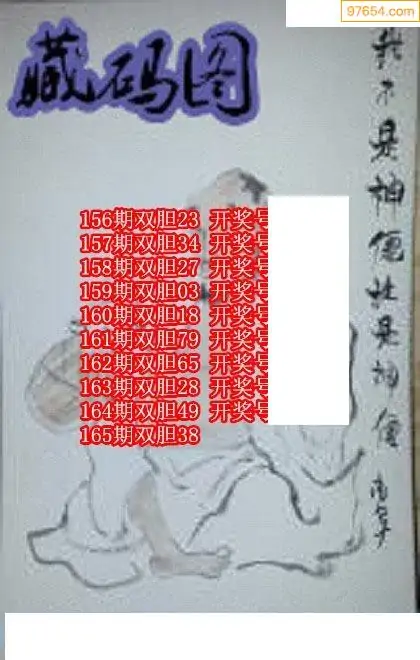 97654.com
藏码图
156期双胆23 开奖号
157期双胆34 开奖号
158期双胆27 开奖号
159期双胆03 开奖号
160期双胆18 开奖号
161期双胆79 开奖号
162期双胆65 开奖号
163期双胆28 开奖号
164期双胆49 开奖号
165期双胆38
我不是神仙谁是神仙